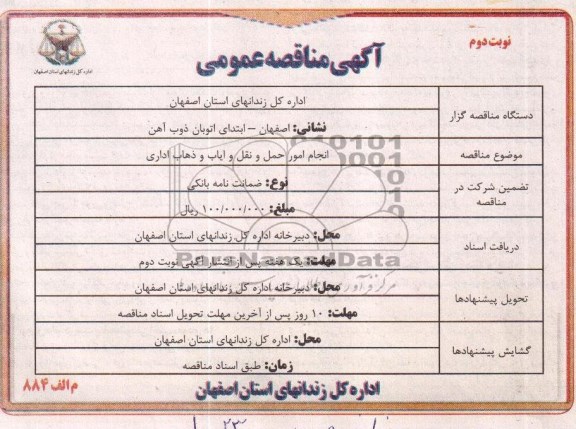 نوبت دوم
آگهی مناقصه عمومی
اداره کل زندانهای استان اصفهان
دستگاه مناقصه گزار
اداره کل زندانهای استان اصفهان
نشانی: اصفهان – ابتدای اتوبان ذوب آهن
موضوع مناقصه
انجام امور حمل و نقل و ایاب و ذهاب اداری
تضمین شرکت در مناقصه
نوع: ضمانت نامه بانکی
مبلغ: ۱۰۰/۰۰۰/۰۰۰ ریال
دریافت اسناد
محل: دبیرخانه اداره کل زندانهای استان اصفهان
مهلت: یک هفته پس از انتشار آگهی نوبت دوم
تحویل پیشنهادها
محل: دبیرخانه اداره کل زندانهای استان اصفهان
مهلت: ۱۰ روز پس از آخرین مهلت تحویل اسناد مناقصه
گشایش پیشنهادها
محل: اداره کل زندانهای استان اصفهان
زمان: طبق اسناد مناقصه
اداره کل زندانهای استان اصفهان
م الف ۸۸۴